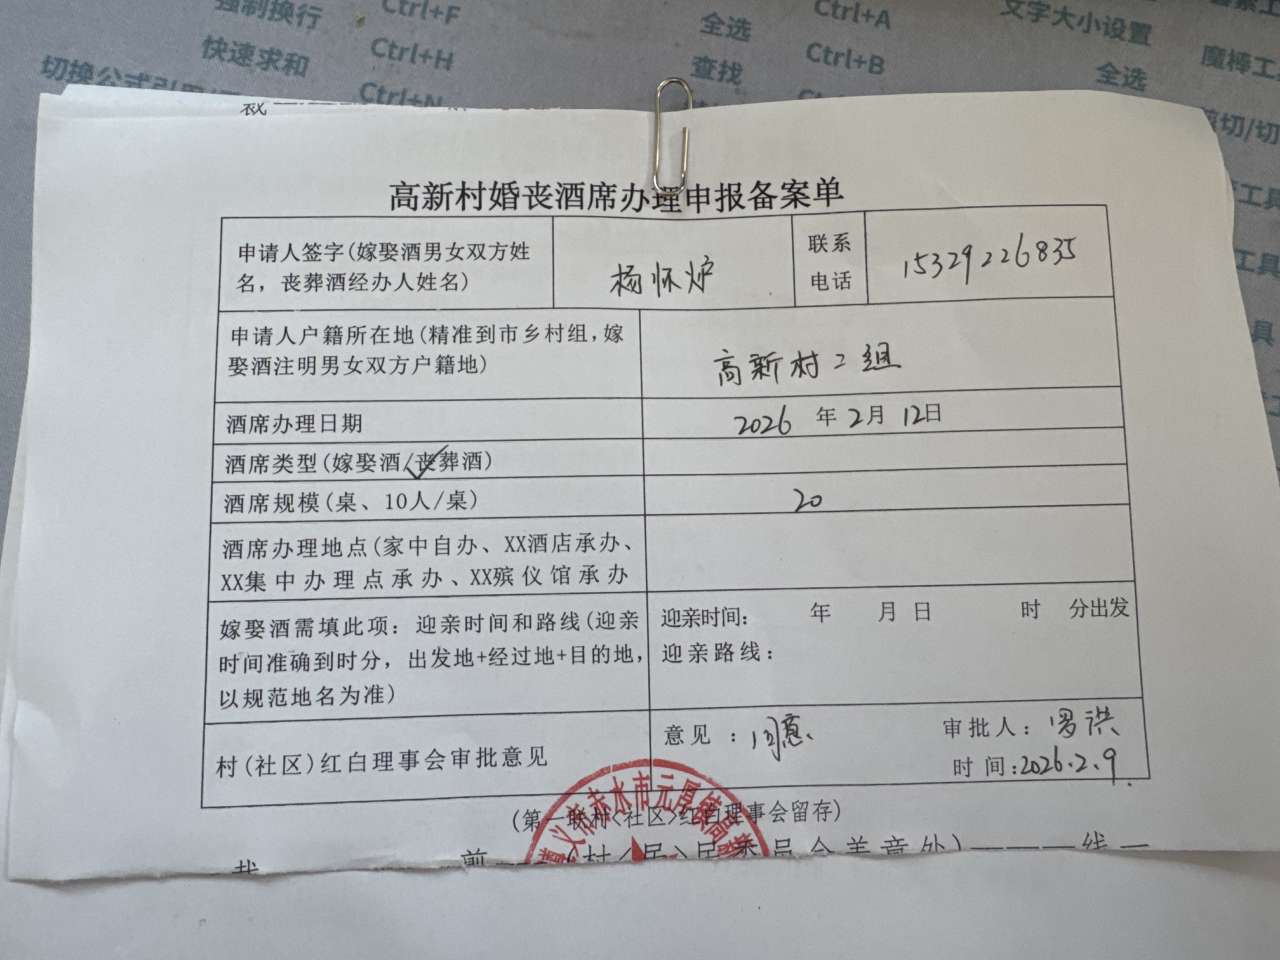 强制换行 Ctrl+F 全选 Ctrl+A 文字大小设置
快速求和 Ctrl+H 查找 Ctrl+B 全选 魔棒工
Ctrl+N
裁
高新村婚丧酒席办理申报备案单
申请人签字(嫁娶酒男女双方姓
名，丧葬酒经办人姓名)
杨怀炉
联系
电话
15329226835
申请人户籍所在地(精准到市乡村组,嫁
娶酒注明男女双方户籍地)
高新村二组
酒席办理日期
2026 年 2月 12日
酒席类型(嫁娶酒/丧葬酒)
酒席规模(桌、10人/桌)
20
酒席办理地点(家中自办、XX酒店承办、
XX集中办理点承办、XX殡仪馆承办
嫁娶酒需填此项：迎亲时间和路线(迎亲
时间准确到时分，出发地+经过地+目的地，
以规范地名为准)
迎亲时间: 年 月 日 时 分出发
迎亲路线：
村(社区)红白理事会审批意见
意见：同意 审批人：罗洪
时间:2026.2.9.
(第一联村<社区>红白理事会留存)
遵义市赤水市元厚镇高新
裁————剪——(村<居>民委员会盖章处)————线—